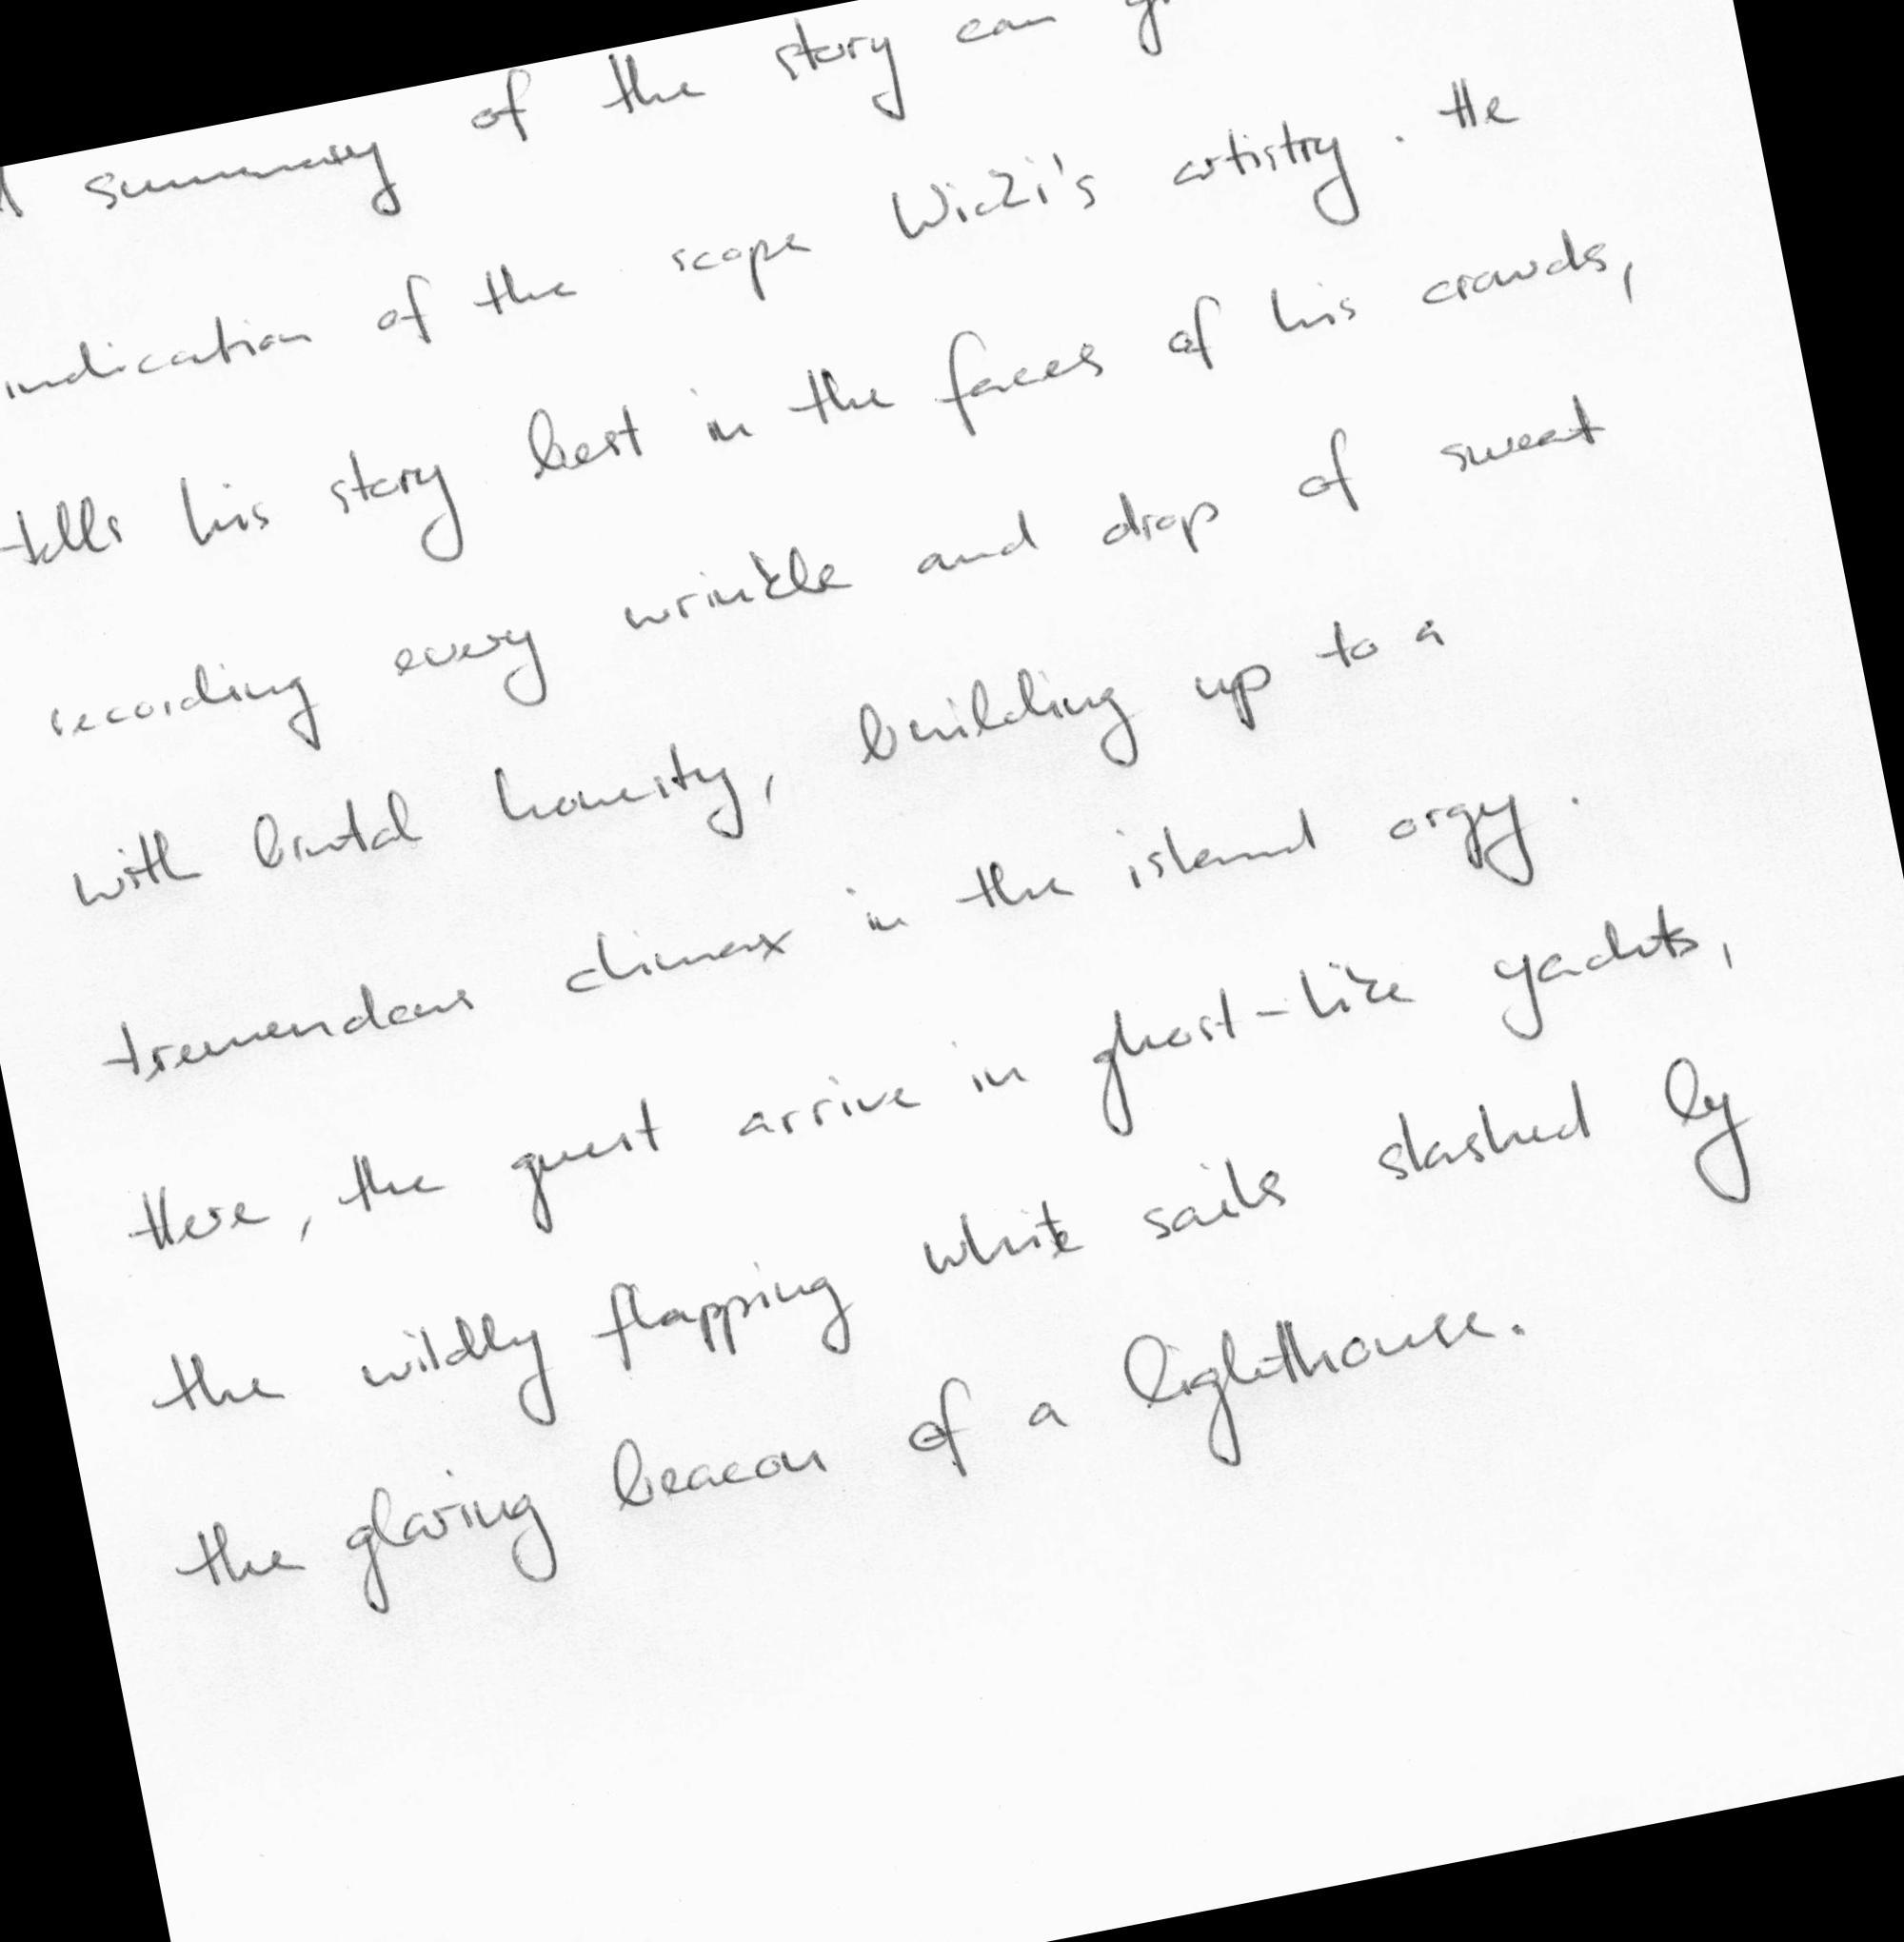 summary of the story can
indication of the scope Wicki's artistry. He
tells his story best in the faces of his crowds,
recording every wrinkle and drop of sweat
with brutal honesty, building up to a
tremendous climax in the island orgy.
Here, the guest arrive in ghost-like yachts,
the wildly flapping white sails slashed by
the glaring beacon of a lighthouse.